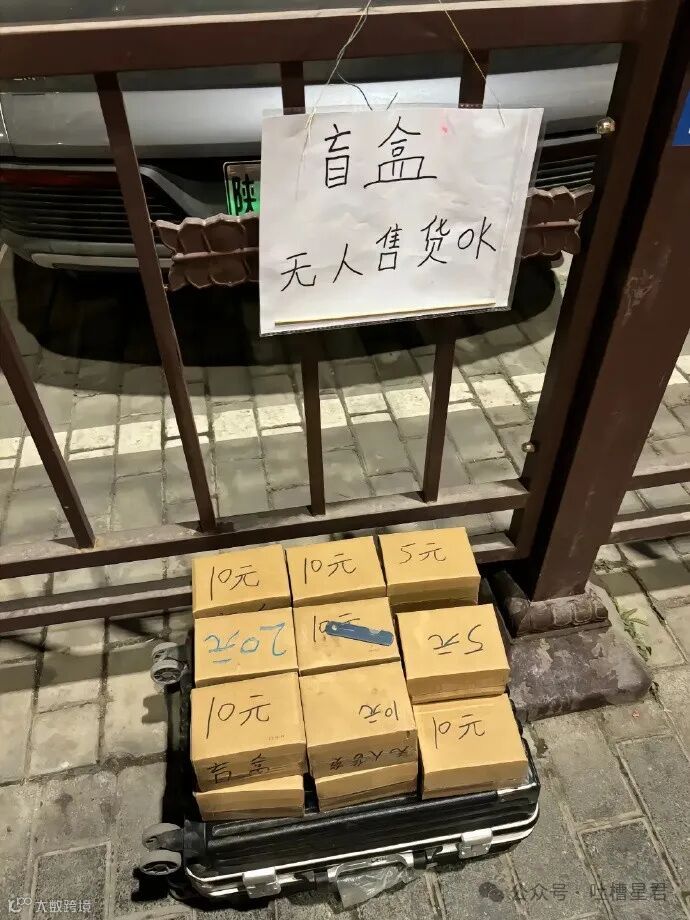 陕
盲盒
无人售货OK
10元
10元
5元
20元
10元
5元
10元
10元
10元
无人售货
公众号·吐槽星君
大数跨境